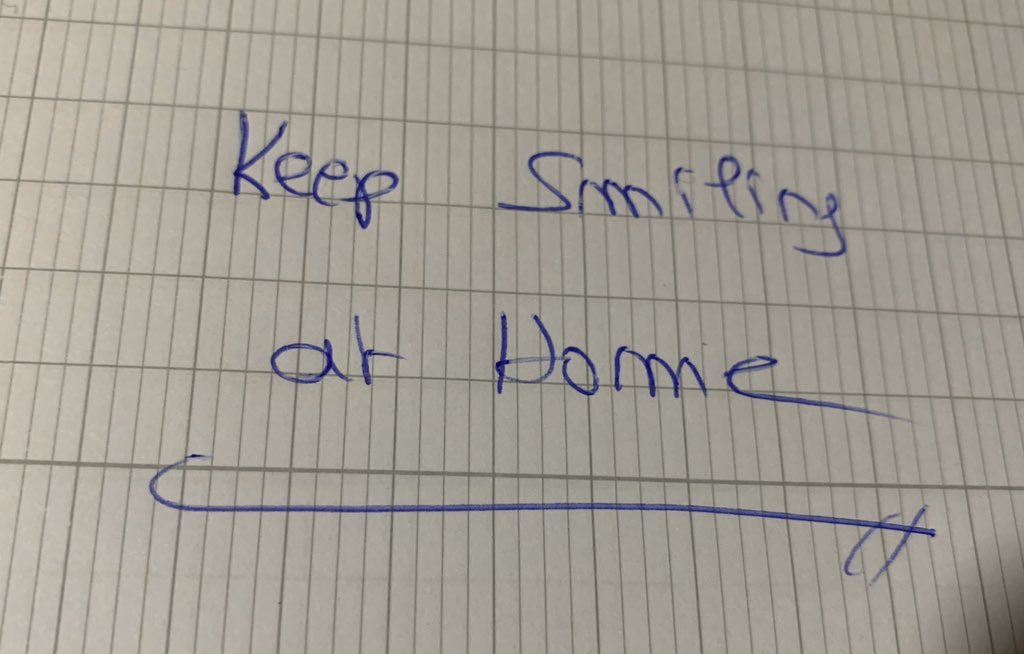 Keep Smiling
at Home